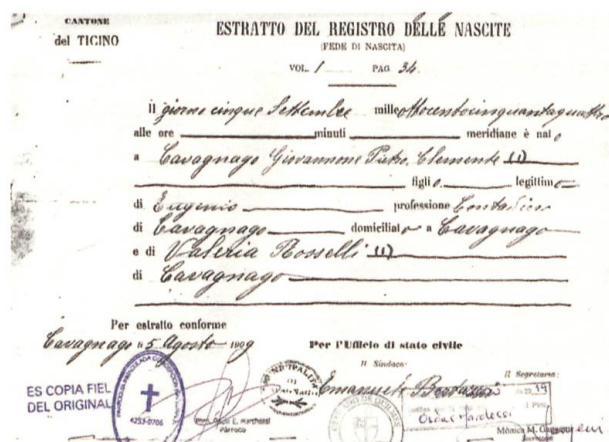 CANTONE
del TICINO
ESTRATTO DEL REGISTRO DELLE NASCITE
(FEDE DI NASCITA)
VOL. 1 PAG 34.
Il giorno cinque Settembre mille ottocentocinquantaquattro
alle ore minuti meridiane è nato
a Cavagnago Giovannone Pietro Clemente (1)
figlio legittimo
di Eugenio professione Contadino
di Cavagnago domiciliato a Cavagnago
e di Valeria Rosselli (1)
di Cavagnago
Per estratto conforme
Cavagnago 5 Agosto 1909
Per l'Ufficio di stato civile
Il Sindaco:
Il Segretario:
Emanuele
ES COPIA FIEL
DEL ORIGINAL
4253-0706
Párroco
Mónica M.